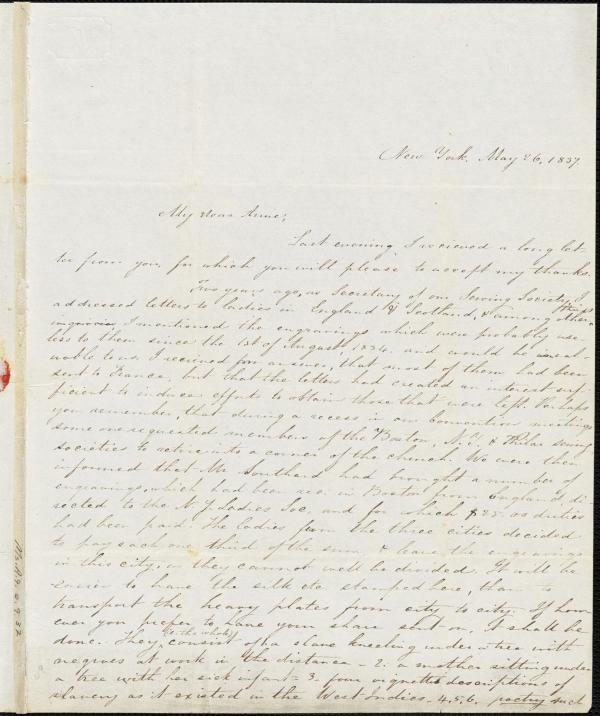 New York. May 26, 1837.
My dear Anne;
Last evening I recieved a long let-
ter from you, for which you will please to accept my thanks.
Two years ago, as Secretary of our Sewing Society, I
addressed letters to ladies in England & Scotland, & among other things
I mentioned the engravings which were probably use-
less to them since the 1st of August, 1834. and would be
to us. I recieved for answer, that most of them had been
sent to France, but that the letters had created an interest suf-
ficient to induce efforts to obtain those that were left. Perhaps
you remember, that during a recess in our Convention meetings
some one requested members of the Boston, N.Y. & Phila sewing
societies to retire into a corner of the church. We were then
informed that Mr Southard had brought a number of
engravings, which had been rec. in Boston from England, di-
rected to the N.Y. Ladies Soc. and for which $25 as duties
had been paid. The ladies from the three cities decided
to pay each one third of the sum, & leave the engravings
in this city, as they cannot well be divided. It will be
easier to have the silk etc stamped here, than to
transport the heavy plates from city to city. If how
ever you prefer to have your share sent on, it shall be
done. They (the whole) consist of a slave kneeling under a tree with
negroes at work in the distance - 2. a mother sitting under
a tree with her sick infant - 3. four vignette descriptions of
slavery as it existed in the West Indies. 4, 5, 6, poetry such
Ms.A.9.2.9.37